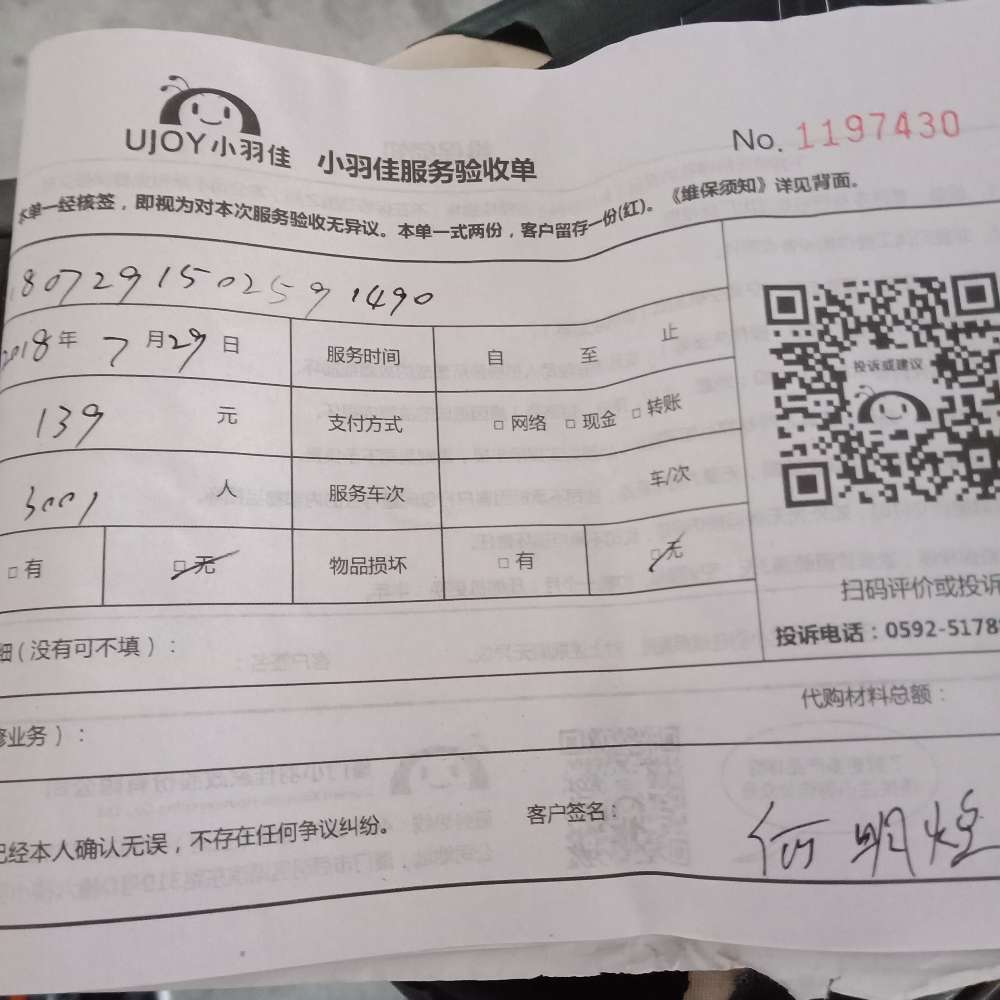 UJOY小羽佳 小羽佳服务验收单 No. 1197430
本单一经核签，即视为对本次服务验收无异议。本单一式两份，客户留存一份(红)。《维保须知》详见背面。
180729150259 1490
2018年 7 月 29 日 服务时间 自 至 止
投诉或建议
139 元 支付方式 □ 网络 □ 现金 □ 转账
3001 人 服务车次 车/次
□ 有 □ 无 物品损坏 □ 有 □ 无
扫码评价或投诉
投诉电话：0592-5178
细（没有可不填）：
代购材料总额：
修业务）：
已经本人确认无误，不存在任何争议纠纷。 客户签名： 何明煌